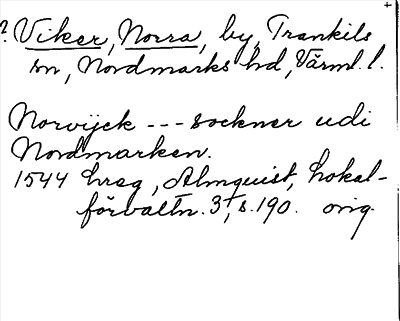 ? Viker, Norra, by, Trankils
sn, Nordmarks hd, Värml. l.
Norvijek --- sockner udi
Nordmarken.
1544 hreg, Almquist, Lokal-
förvaltn. 3, s. 190. orig.